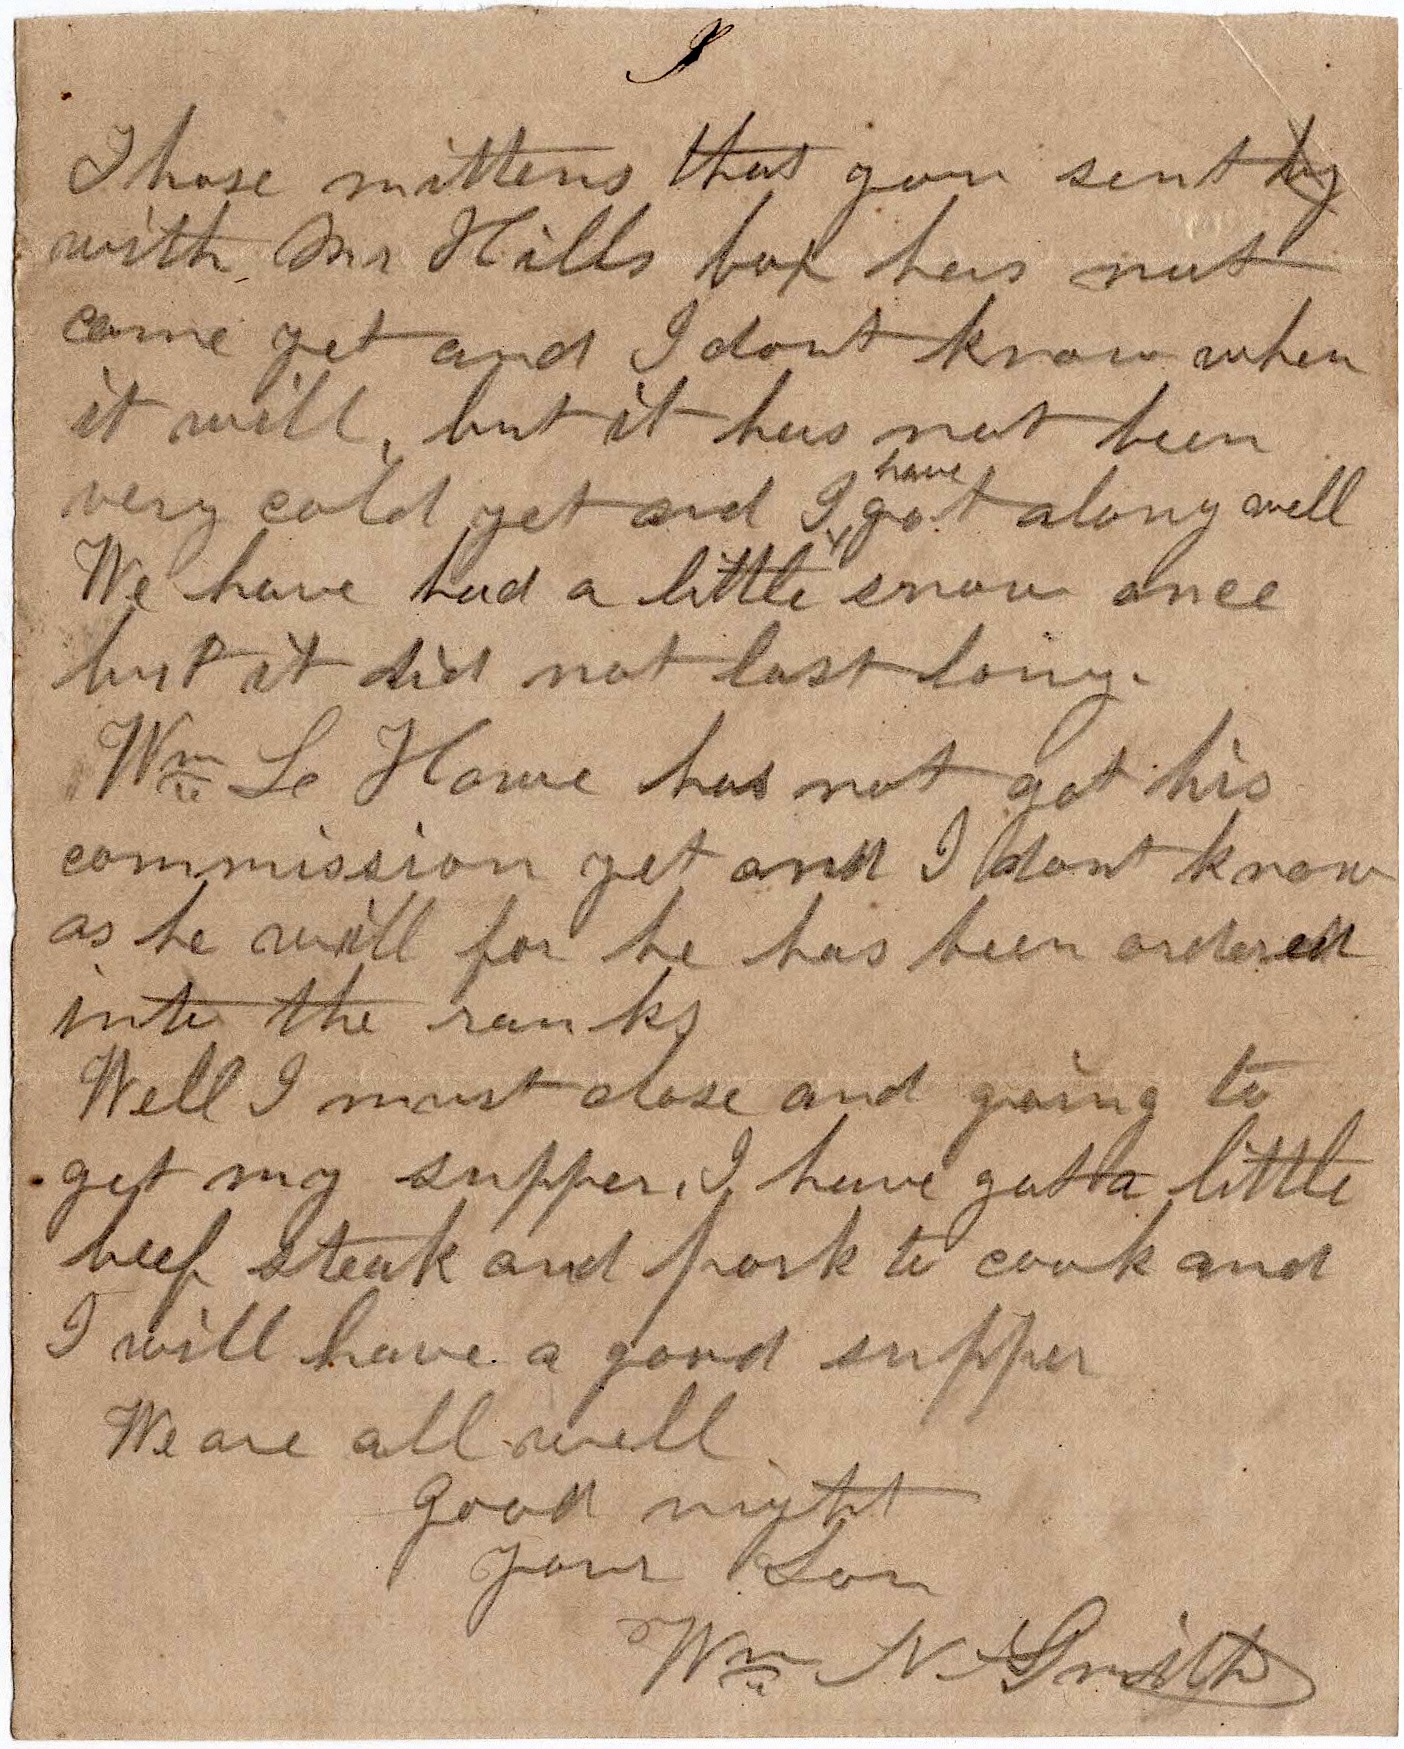 Those mittens that you sent by
with Mr Hills box has not
come yet and I dont know when
it will, but it has not been
very cold yet and I have got along well
We have had a little snow once
but it did not last long.
Wm Le Howe has not got his
commission yet and I dont know
as he will for he has been ordered
into the ranks
Well I must close and going to
get my supper, I have got a little
beef steak and pork to cook and
I will have a good supper
We are all well
Good night
your Son
Wm N. Smith